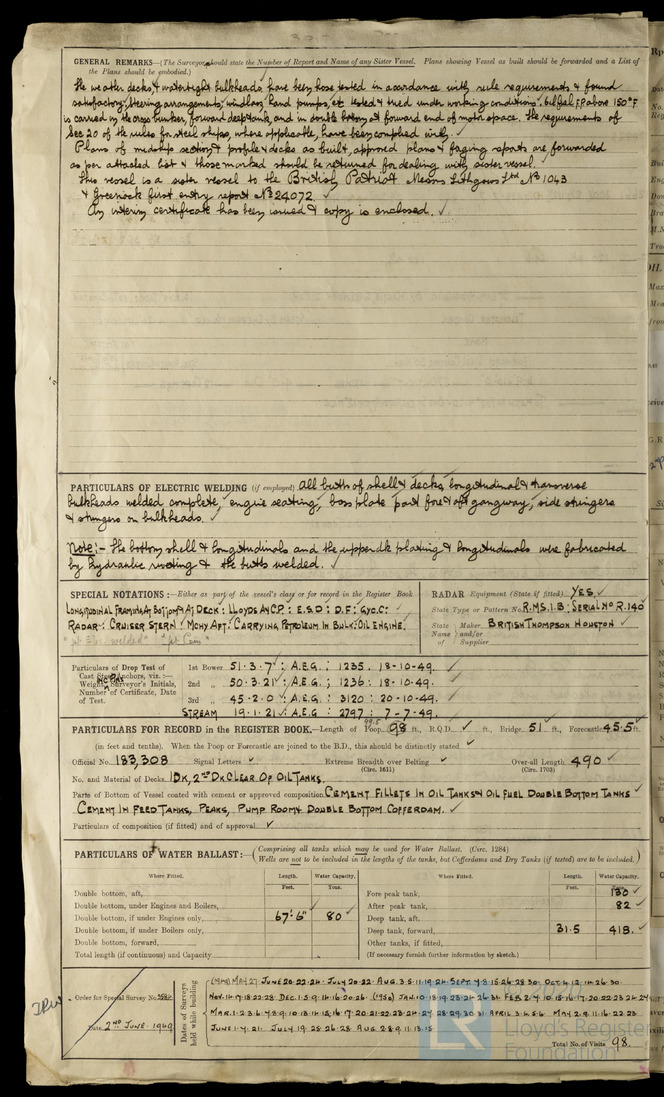 GENERAL REMARKS—(The Surveyor should state the Number of Report and Name of any Sister Vessel. Plans showing Vessel as built should be forwarded and a List of
the Plans should be embodied.)
The weather decks & watertight bulkheads have been hose tested in accordance with rule requirements & found
satisfactory, steering arrangements, windlass, hand pumps, etc tested & tried under working conditions. Oil fuel F.P. above 150°F
is carried in the cross bunker, forward deep tank, and in double bottom at forward end of motor space. The requirements of
Sec 20 of the rules for steel ships, where applicable, have been complied with. ✓
Plans of midship section, profile & decks as built, approved plans & forging reports are forwarded
as per attached list & those marked should be returned for dealing with sister vessel.
This vessel is a sister vessel to the British Patriot Messrs Lithgows Ltd No 1043
& Greenock first entry report No 24072. ✓
An interim certificate has been issued & copy is enclosed. ✓
PARTICULARS OF ELECTRIC WELDING (if employed) All butts of shell & decks, longitudinal & transverse
bulkheads welded complete, engine seating, boss plate part fore & aft gangway, side stringers
& stringers on bulkheads. ✓
Note:- The bottom shell & longitudinals and the upper dk plating & longitudinals were fabricated
by hydraulic riveting & the butts welded. ✓
SPECIAL NOTATIONS:—Either as part of the vessel's class or for record in the Register Book
LONGITUDINAL FRAMING AT BOTTOM & AT DECK: LLOYDS A&CP: E.S.D: D.F: GYC.C: ✓
RADAR: CRUISER STERN: MCHY AFT: CARRYING PETROLEUM IN BULK: OIL ENGINE.
"pt Elec. welded"
RADAR Equipment (State if fitted) YES. ✓
State Type or Pattern No. R.M.S.1.B: SERIAL No R.140 ✓
State Name of Maker and/or Supplier BRITISH THOMPSON HOUSTON ✓
Particulars of Drop Test of
Cast Steel Anchors, viz.:—
Weight, Surveyor's Initials,
Number of Certificate, Date
of Test.
1st Bower 51·3·7 ✓: A.E.G.: 1235. 18-10-49. ✓
2nd „ 50·3·21 ✓: A.E.G.; 1236: 18-10-49. ✓
3rd „ 45·2·0 ✓: A.E.G: 3120: 20-10-49. ✓
STREAM 19·1·21 ✓: A.E.G: 2797: 7-7-49. ✓
PARTICULARS FOR RECORD in the REGISTER BOOK.—Length of Poop 99.5 98 ft., R.Q.D. ✓ ft., Bridge 51 ft., Forecastle 45·5 ft.
(in feet and tenths). When the Poop or Forecastle are joined to the B.D., this should be distinctly stated ✓
Official No. 183,308 Signal Letters ✓ Extreme Breadth over Belting ✓ Over-all Length 490 ✓
(Circ. 1611) (Circ. 1703)
No. and Material of Decks. 1DK, 2ND DK CLEAR OF OIL TANKS.
Parts of Bottom of Vessel coated with cement or approved composition CEMENT FILLETS IN OIL TANKS & OIL FUEL DOUBLE BOTTOM TANKS ✓
CEMENT IN FEED TANKS, PEAKS, PUMP ROOM & DOUBLE BOTTOM COFFERDAM. ✓
Particulars of composition (if fitted) and of approval ✓
PARTICULARS OF WATER BALLAST:—(Comprising all tanks which may be used for Water Ballast. (Circ. 1284)
Wells are not to be included in the lengths of the tanks, but Cofferdams and Dry Tanks (if tested) are to be included.)
Where Fitted. Length. Feet. Water Capacity. Tons.
Double bottom, aft,
Double bottom, under Engines and Boilers, ✓
Double bottom, if under Engines only, 67'·6" 80 ✓
Double bottom, if under Boilers only,
Double bottom, forward,
Total length (if continuous) and Capacity
Where Fitted. Length. Feet. Water Capacity. Tons.
Fore peak tank, 130 ✓
After peak tank, 82 ✓
Deep tank, aft.
Deep tank, forward, 31·5 418. ✓
Other tanks, if fitted,
(If necessary furnish further information by sketch.)
Order for Special Survey No.
Date 2ND JUNE 1949
Dates of Surveys held while building
(1949) MAY 27 JUNE 20·22·24· JULY 20·22· AUG. 3·5·11·19·24· SEPT 7·8·15·26·28·30 OCT 4·12·14·26·30
NOV. 14·17·18·22·28· DEC. 1·5·9·14·16·20·26· (1950) JAN. 10·18·19·23·24·26·31 FEB. 2·7·10·15·16·17·20·22·23·24·27
MAR. 1·2·3·6·7·8·9·10·13·14·15·16·17·20·21·22·23·24·27·28·29·30·31 APRIL 3·4·5·6 MAY 2·9·11·16·22·23
JUNE 1·7·21· JULY 19·25·26·28 AUG 2·8·9·11·13·15
Total No. of Visits 98.
LR
Lloyd's Register
Foundation